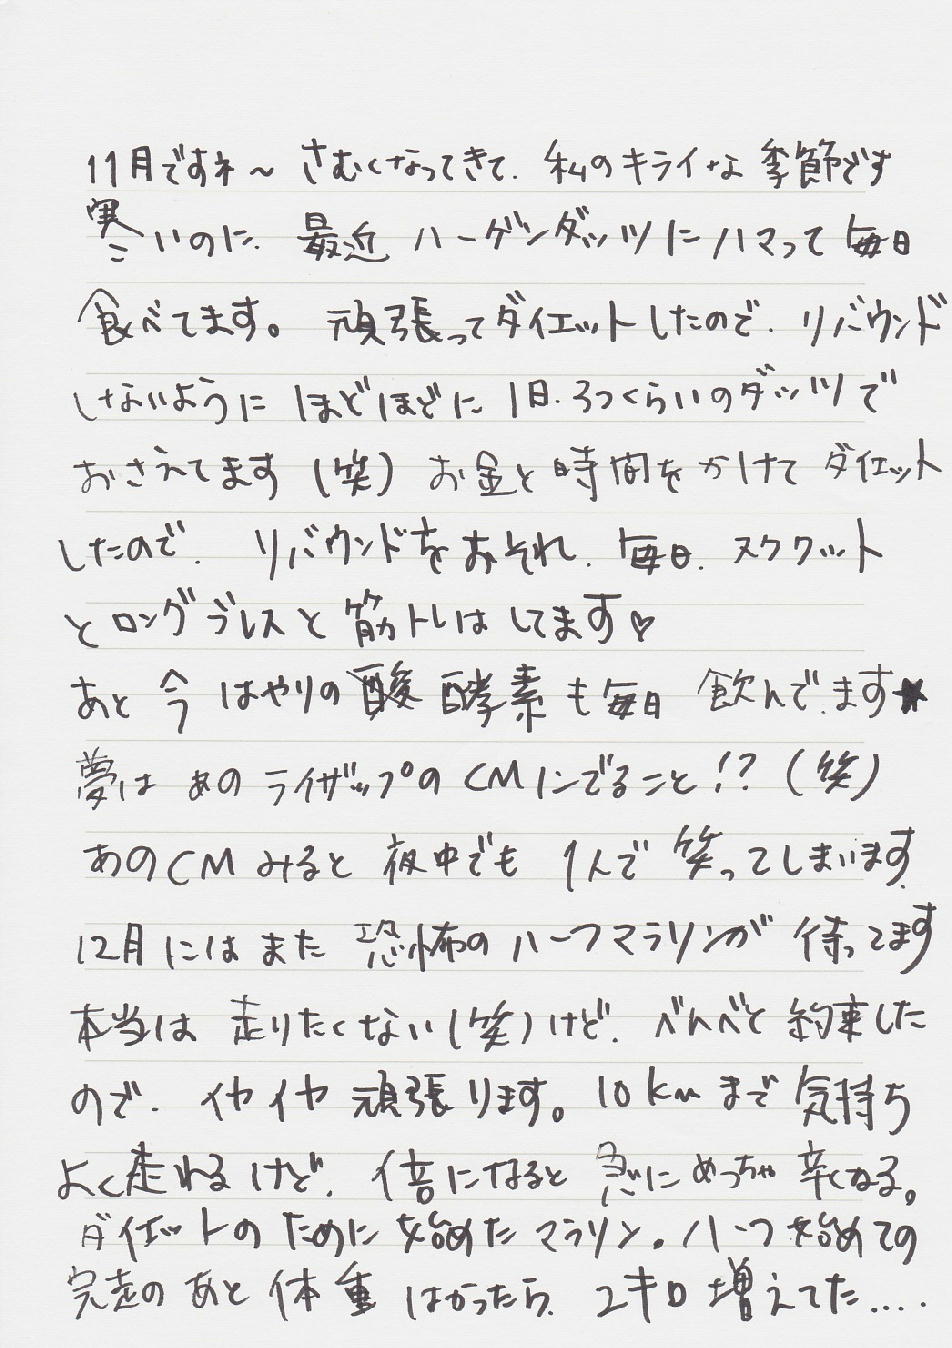 11月ですネ～ さむくなってきて、私のキライな季節です
寒いのに、最近 ハーゲンダッツにハマって毎日
食べてます。頑張ってダイエットしたので、リバウンド
しないように ほどほどに 1日、3つくらいのダッツで
おさえてます(笑) お金と時間をかけてダイエット
したので、リバウンドをおそれ、毎日、スクワット
とロングブレスと筋トレはしてます♡
あと今はやりの酸酵素も毎日飲んでます★
夢は あのライザップのCMにでること!?(笑)
あのCMみると 夜中でも 1人で笑ってしまいます
12月にはまた恐怖のハーフマラソンが待ってます
本当は走りたくない(笑)けど、べんべと約束した
ので、イヤイヤ頑張ります。10kmまで気持ち
よく走れるけど、倍になると急にめっちゃ辛くなる。
ダイエットのために始めたマラソン。ハーフ始めての
完走のあと体重はかったら、2キロ増えてた....